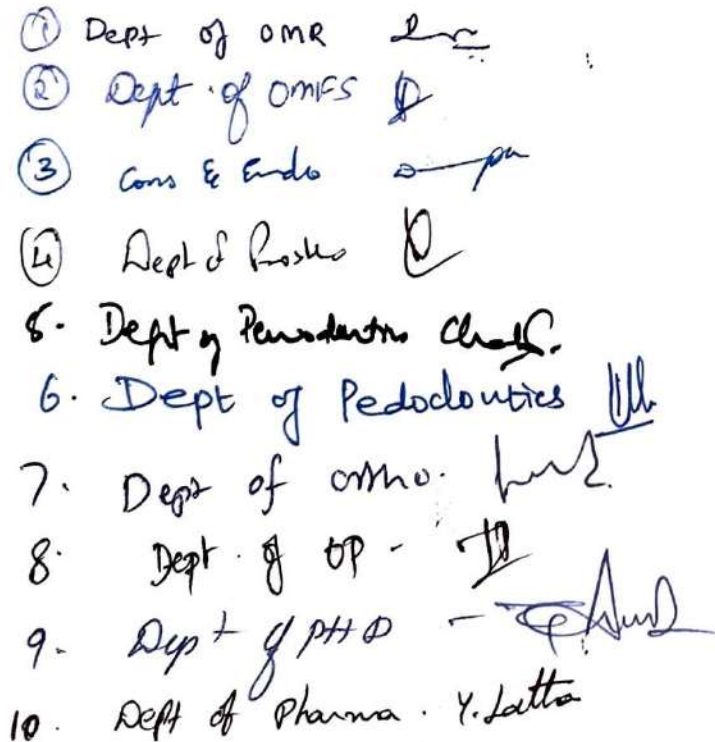 ① Dept of OMR
② Dept. of OMFS
③ Cons & Endo
④ Dept of Prostho
5. Dept of Periodontics
6. Dept of Pedodontics
7. Dept of ortho.
8. Dept. of OP -
9. Dept of PHD -
10. Dept of Pharma. Y. Latha